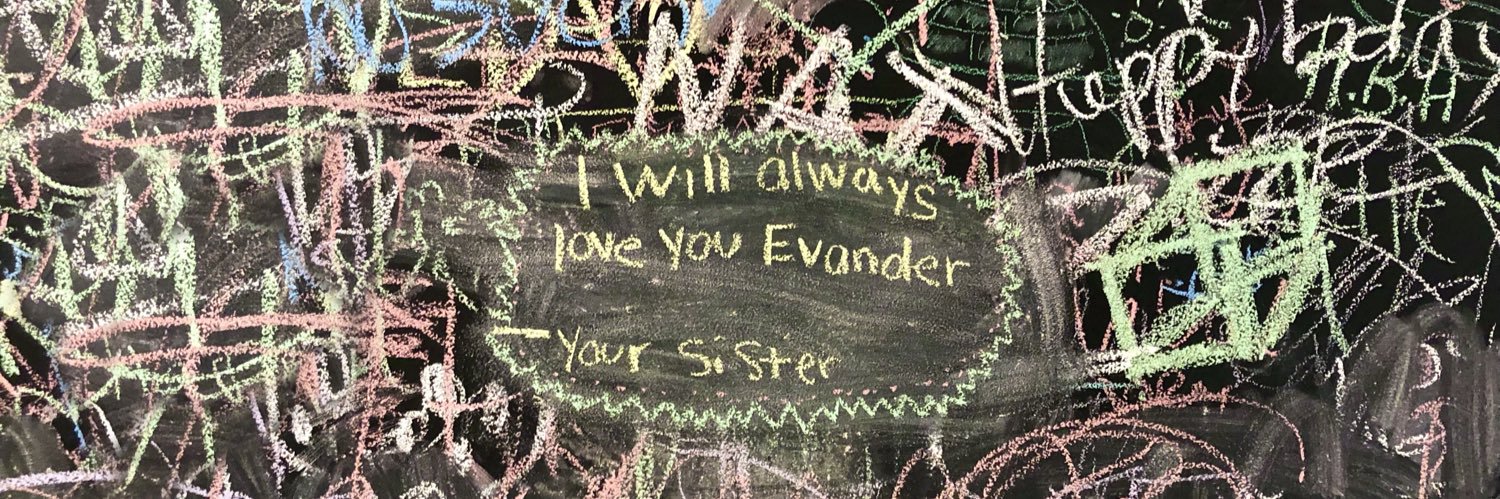 Happy bday
H.B.H
I will always
love you Evander
- Your sister